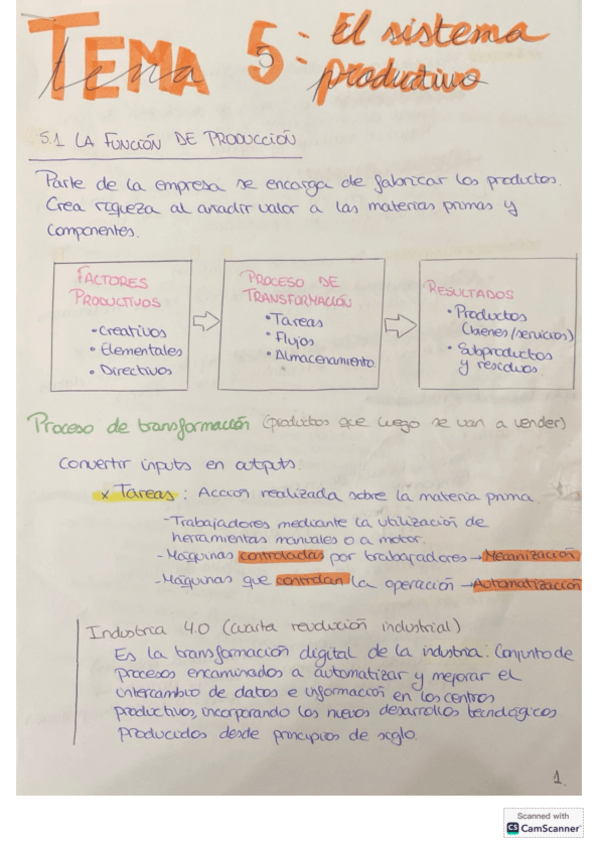 TEMA 5: El sistema
tema productivo
5.1 LA FUNCIÓN DE PRODUCCIÓN
Parte de la empresa se encarga de fabricar los productos.
Crea riqueza al añadir valor a las materias primas y
componentes.
FACTORES
PRODUCTIVOS
• Creativos
• Elementales
• Directivos
PROCESO DE
TRANSFORMACIÓN
• Tareas
• Flujos
• Almacenamiento.
RESULTADOS
• Productos
(bienes/servicios)
• Subproductos
y residuos.
Proceso de transformación (productos que luego se van a vender)
Convertir inputs en outputs.
x Tareas: Acción realizada sobre la materia prima.
- Trabajadores mediante la utilización de
herramientas manuales o a motor.
- Máquinas controladas por trabajadores → Mecanización
- Máquinas que controlan la operación → Automatización
Industria 4.0 (cuarta revolución industrial)
Es la transformación digital de la industria: Conjunto de
procesos encaminados a automatizar y mejorar el
intercambio de datos e información en los centros
productivos, incorporando los nuevos desarrollos tecnológicos
producidos desde principios de siglo.
1.
Scanned with
CS CamScanner